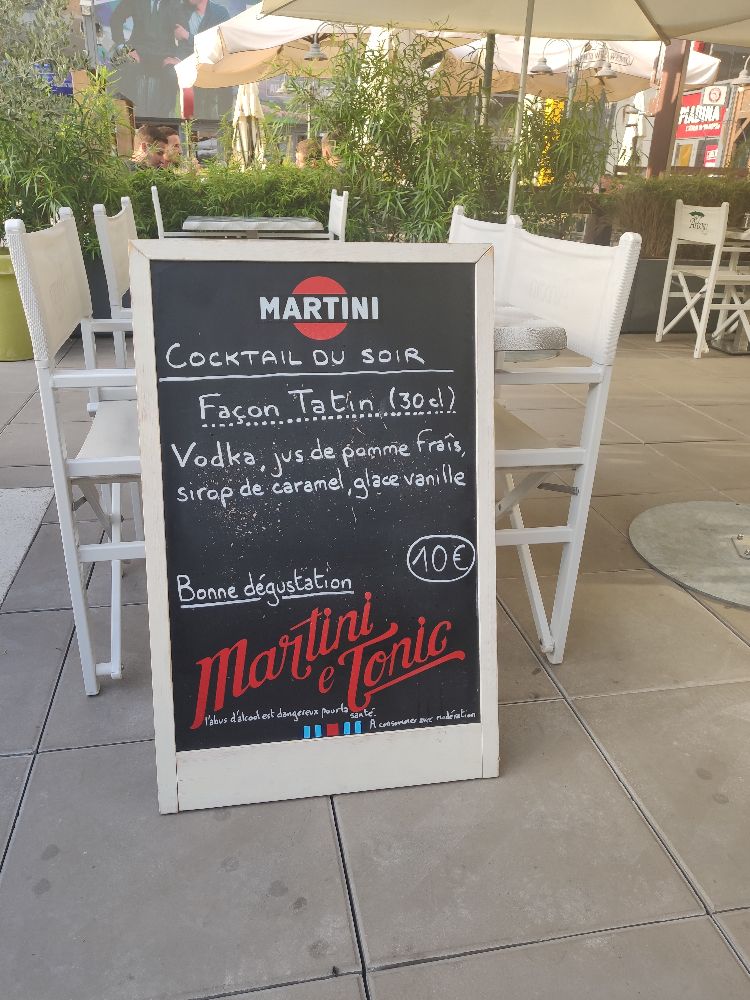 PIADINA
MARTINI
COCKTAIL DU SOIR
Façon Tatin (30 cl)
Vodka, jus de pomme fraîs,
sirop de caramel, glace vanille
10€
Bonne dégustation
Martini
e Tonic
l'abus d'alcool est dangereux pour la santé.
A consommer avec modération